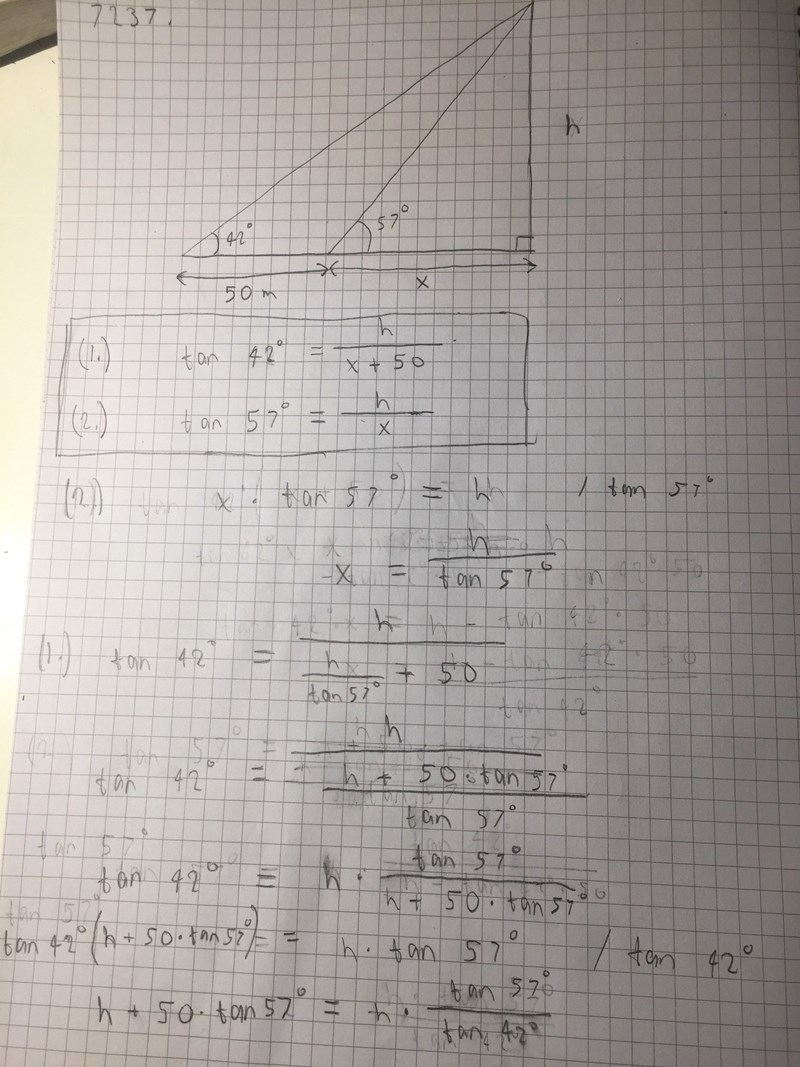 7237.
h
42° 57°
50 m x
(1.) tan 42° = h / (x + 50)
(2.) tan 57° = h / x
(2.) x · tan 57° = h / tan 57°
x = h / tan 57°
(1.) tan 42° = h / (h / tan 57° + 50)
tan 42° = h / ((h + 50 · tan 57°) / tan 57°)
tan 42° = h · tan 57° / (h + 50 · tan 57°)
tan 42° (h + 50 · tan 57°) = h · tan 57° / tan 42°
h + 50 · tan 57° = h · tan 57° / tan 42°